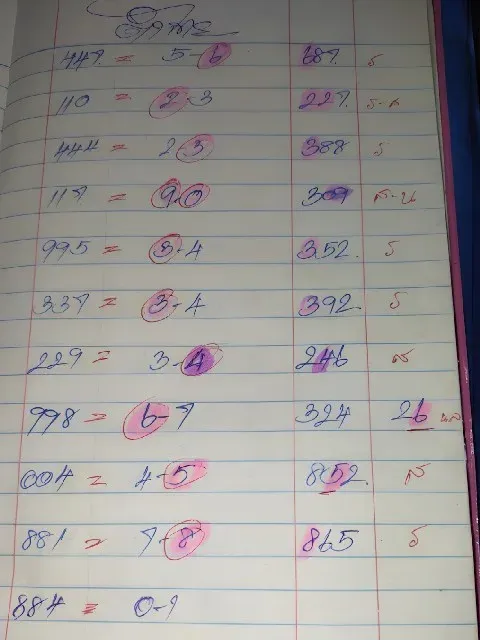 447. = 5-6 687. ร
110 = 2-3 227. ร-ล
444 = 2-3 388 ร
117 = 9-0 309 ล-น
995 = 3-4 352. ร
337 = 3-4 392. ร
229 = 3-4 246 ล
998 = 6-7 324 26
004 = 4-5 852. ล
881 = 7-8 865 ร
884 = 0-1